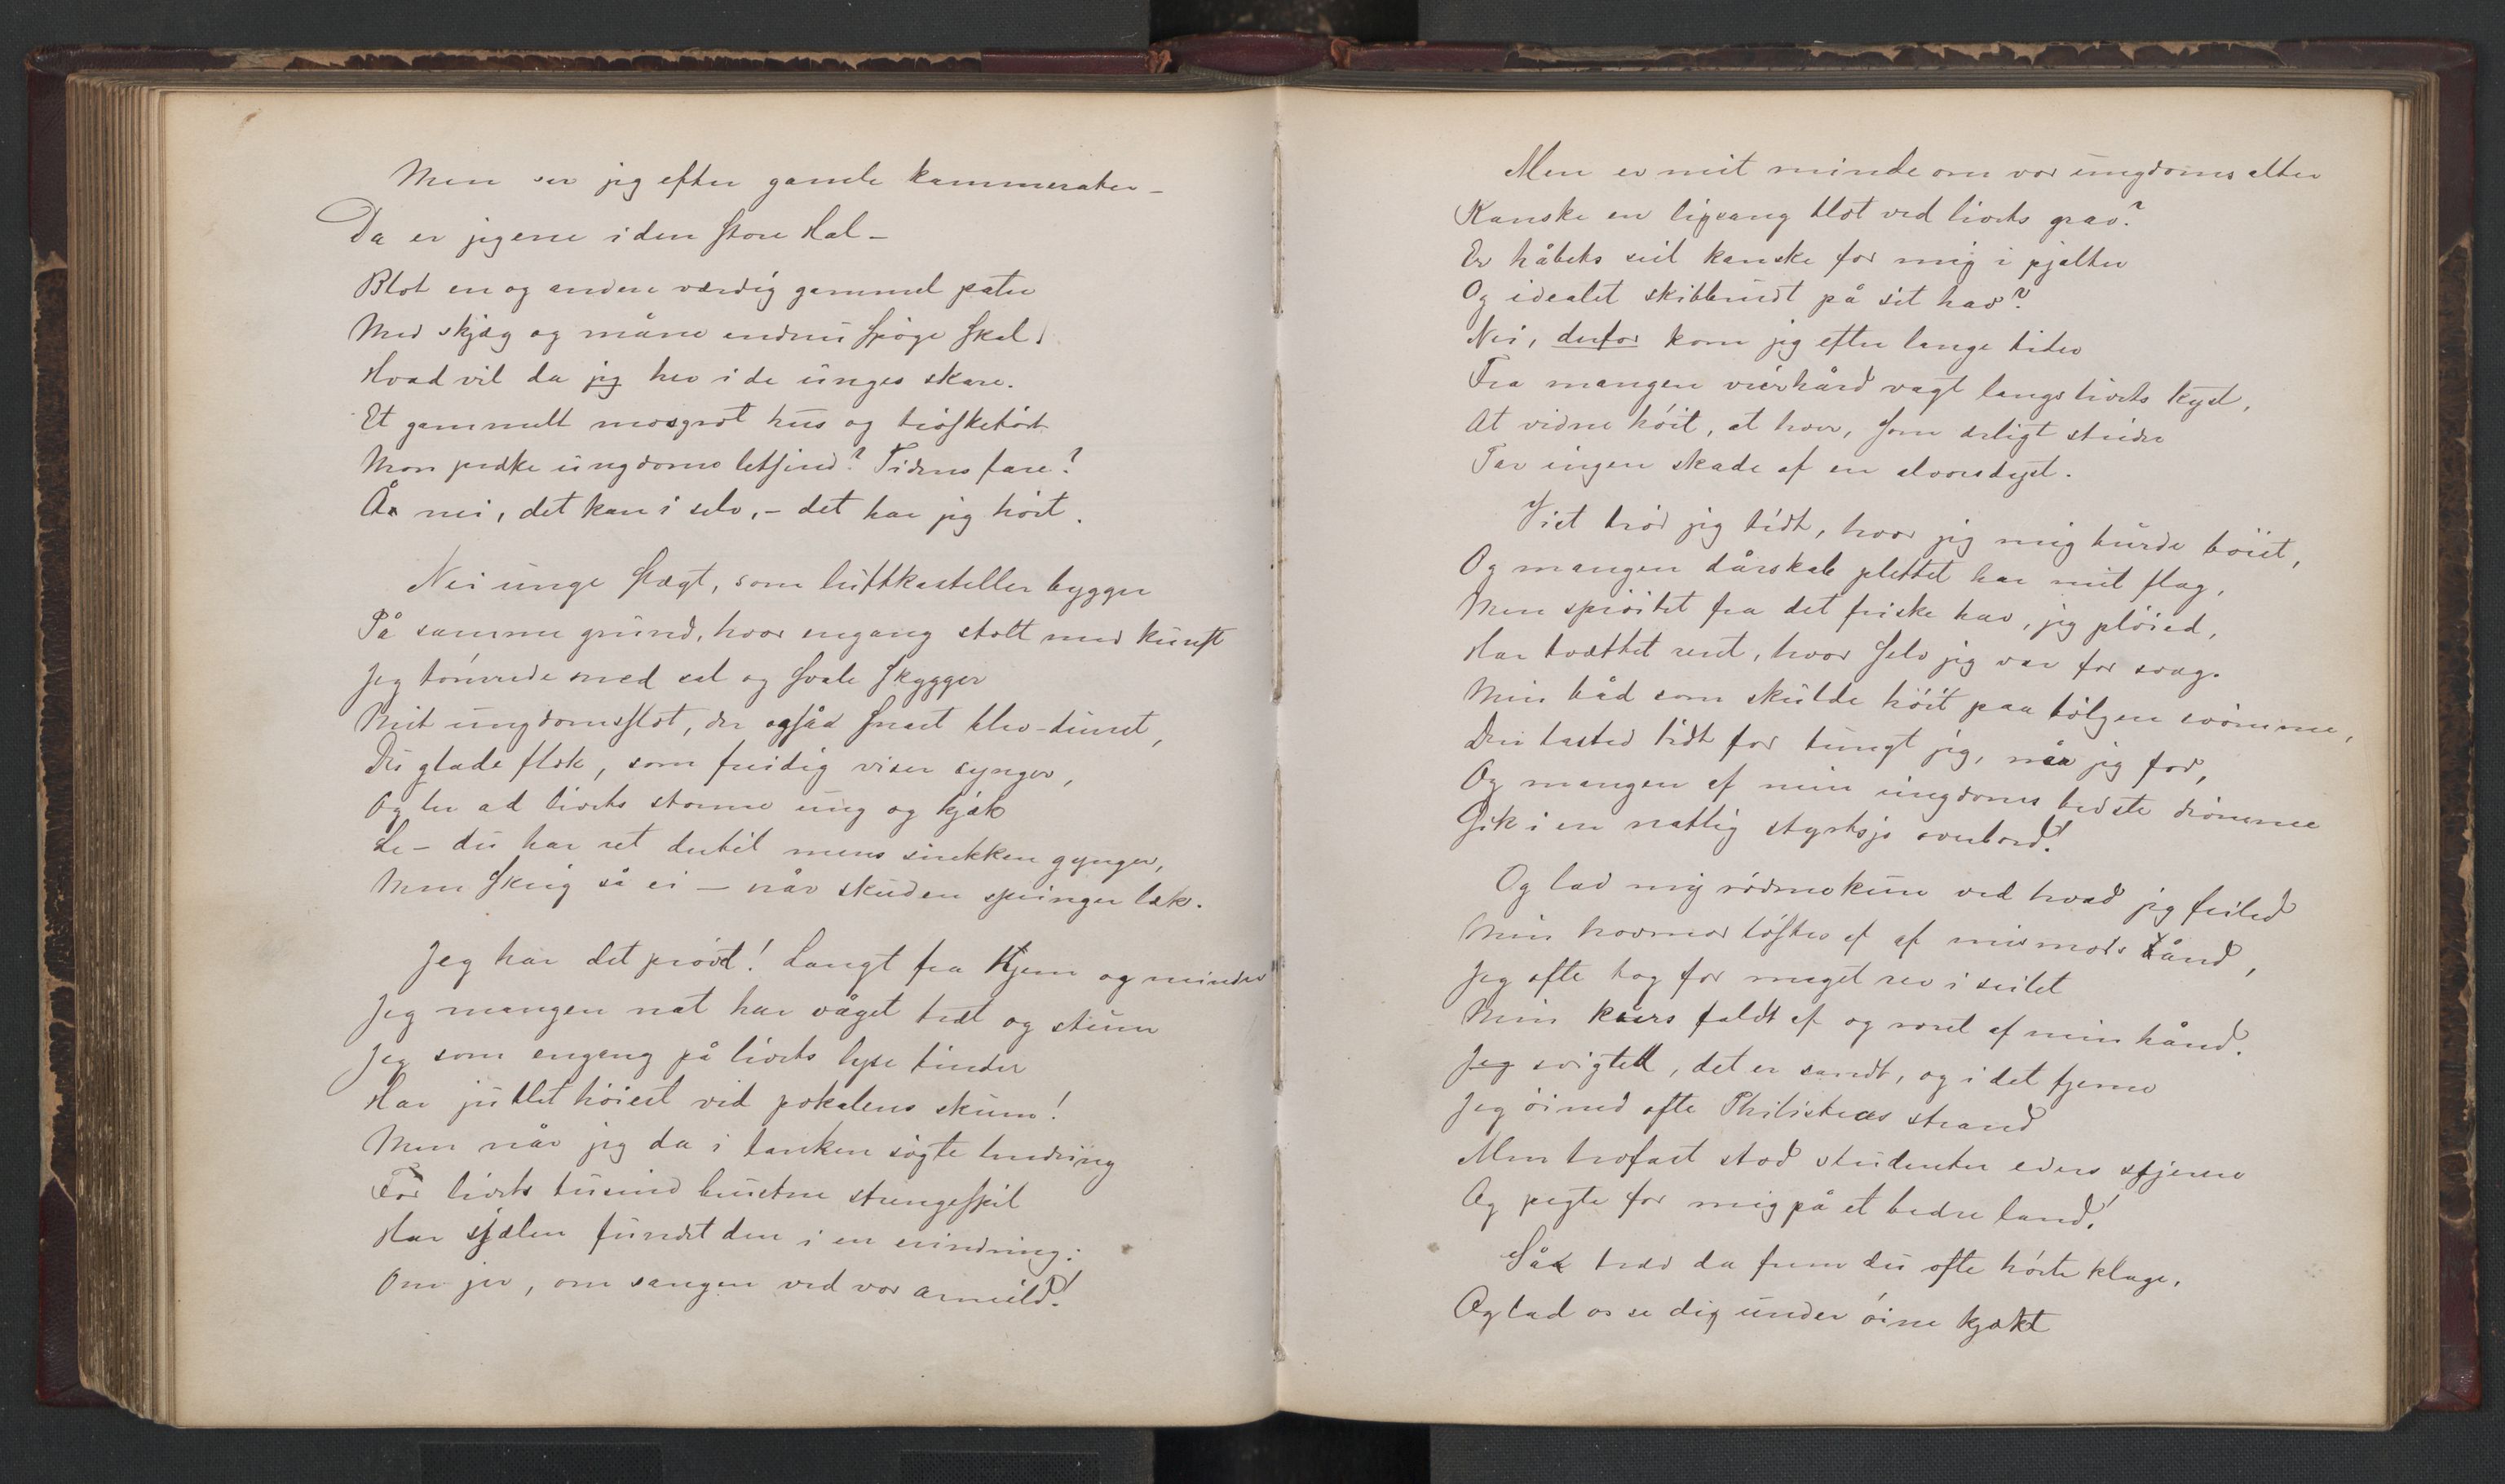 Men ser jeg efter gamle kammerater –
Da er jeg ene i den store Hal –
Blot en og anden værdig gammel pater
Med skjæg og måne endnu spøge skal.
Hvad vil da jeg her i de unges skare.
Et gammelt mosgrot hus og trøsketørt
Mon præke ungdoms letsind? Tidens fare?
Å nei, det kan i selv, – det har jeg hört.
Nei unge slægt, som luftkasteller bygger
På samme grund, hvor engang stolt med kunst
Jeg tömrede med sal og svale skygger
Mit ungdomsslot, der også snart blev – dunst,
Du glade flok, som freidig viser synger,
Og ler ad livets storme ung og kjæk
Le – du har ret dertil mens snekken gynger,
Men skrig så ei – når skuden springer læk.
Jeg har det prövd! Langt fra Hjem og minder
Jeg mangen nat har våget træt og stum
Jeg som engang på livets lyse tinder
Har jublet höiest ved pokalens skum!
Men når jeg da i tanken sögte lindring
For livets tusind brustne strengespil
Har sjælen fundet den i en erindring:
Om jer, om sangen ved vor arneild!
Men er mit minde om vor ungdoms alter
Kanske en ligsang blot ved livets grav?
Er håbets seil kanske for mig i pjalter
Og idealet skibbrudt på sit hav?
Nei, derfor kom jeg efter lange tider
Fra mangen veirhård vagt langs livets kyst,
At vidne höit, at hver, som ærligt strider
Tar ingen skade af en alvorsdyst.
Vist tröd jeg tidt, hvor jeg mig burde böiet,
Og mangen dårskab plettet har mit flag,
Men spröitet fra det friske hav, jeg plöied,
Har tvættet rent, hvor selv jeg var for svag.
Min båd som skulde höit paa bölgen svömme,
Den lasted tidt for tungt jeg, når jeg for,
Og mangen af min ungdoms bedste drömme
Gik i en natlig styrtsjø overbord!
Og lad mig rödme kun ved hvad jeg feiled
Min hovmod löftes af af mismods ånd,
Jeg ofte tog for meget rev i seilet
Min kurs faldt af og roret af min hånd.
Jeg svigted, det er sandt, og i det fjerne
Jeg öined ofte Philisteas strand
Men trofast stod studenter eders stjerne
Og pegte for mig på et bedre land!
Så træd da frem du ofte hörte klage,
Og lad os se dig under öine kjækt